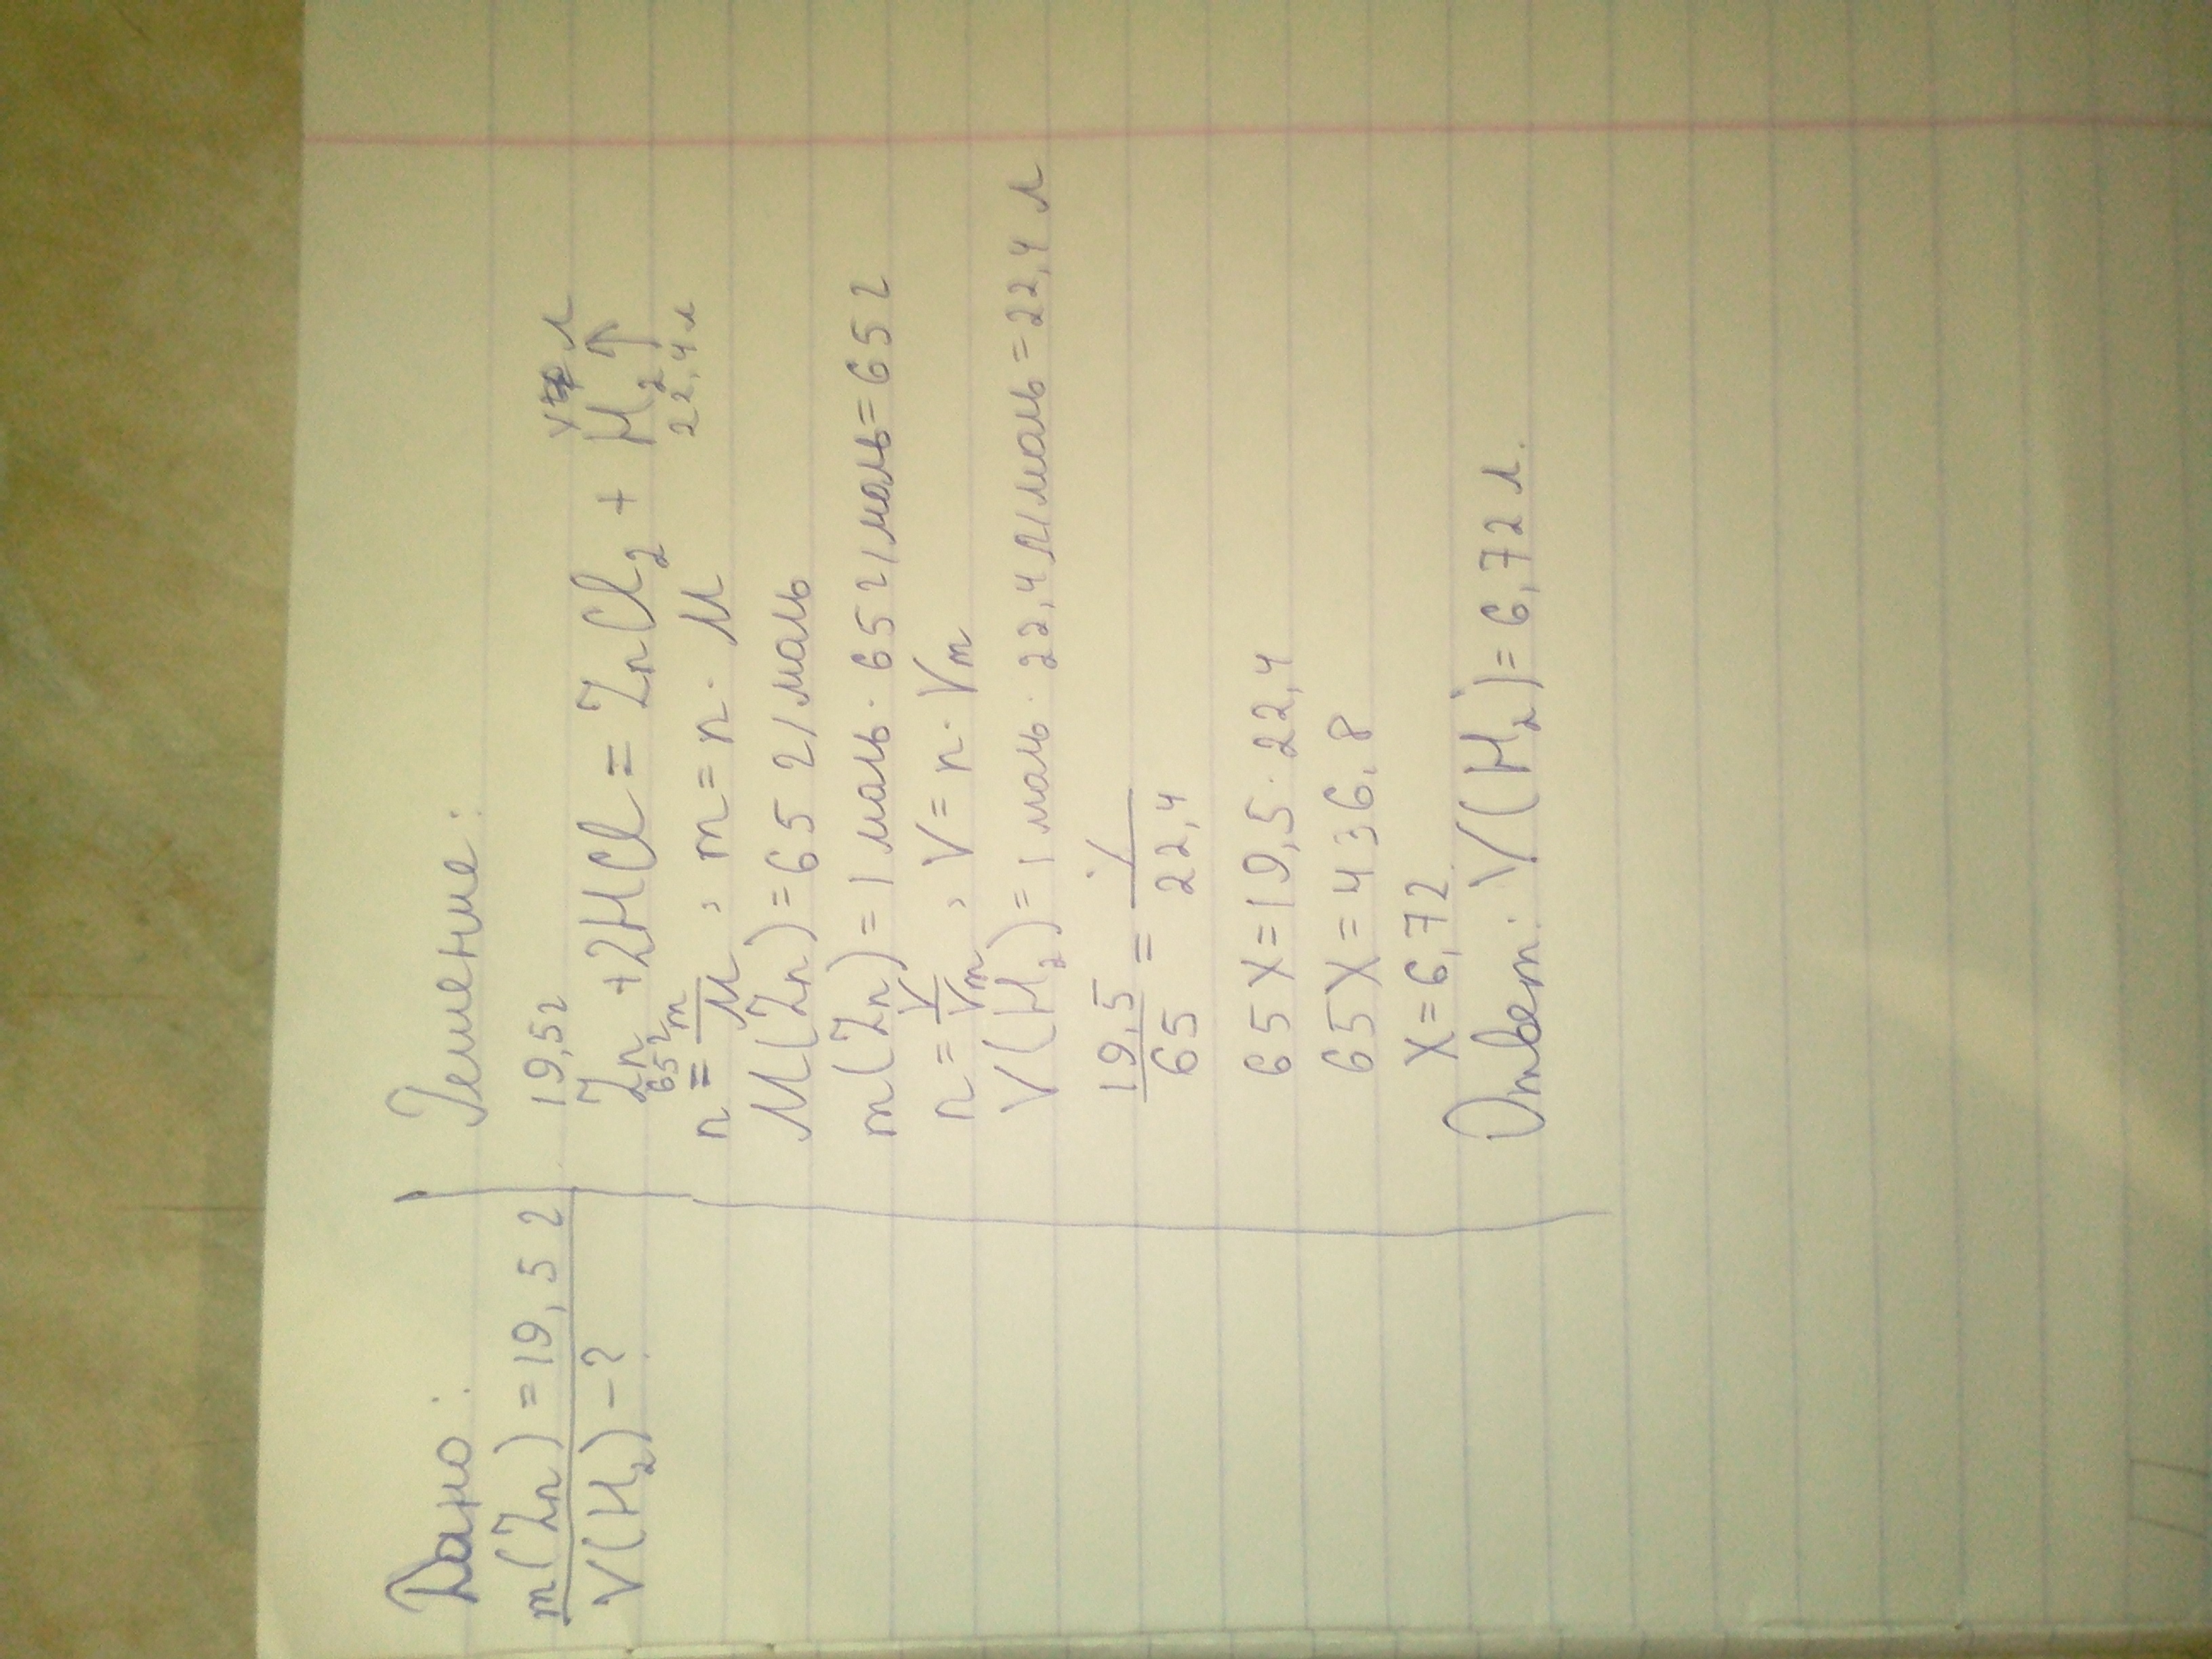 Дано:
m(Zn)=19,5 г
V(H₂)-?
Решение:
19,5г
Zn +2HCl = ZnCl₂ + H₂↑
65г 22,4 л
n = m/M ; m = n · M
M(Zn)=65 г/моль
m(Zn)=1 моль · 65 г/моль=65 г
n = V/Vm ; V = n · Vm
V(H₂)=1 моль · 22,4 л/моль=22,4 л
19,5/65 = x/22,4
65 X=19,5·22,4
65X=436,8
X=6,72
Ответ: V(H₂)=6,72 л.